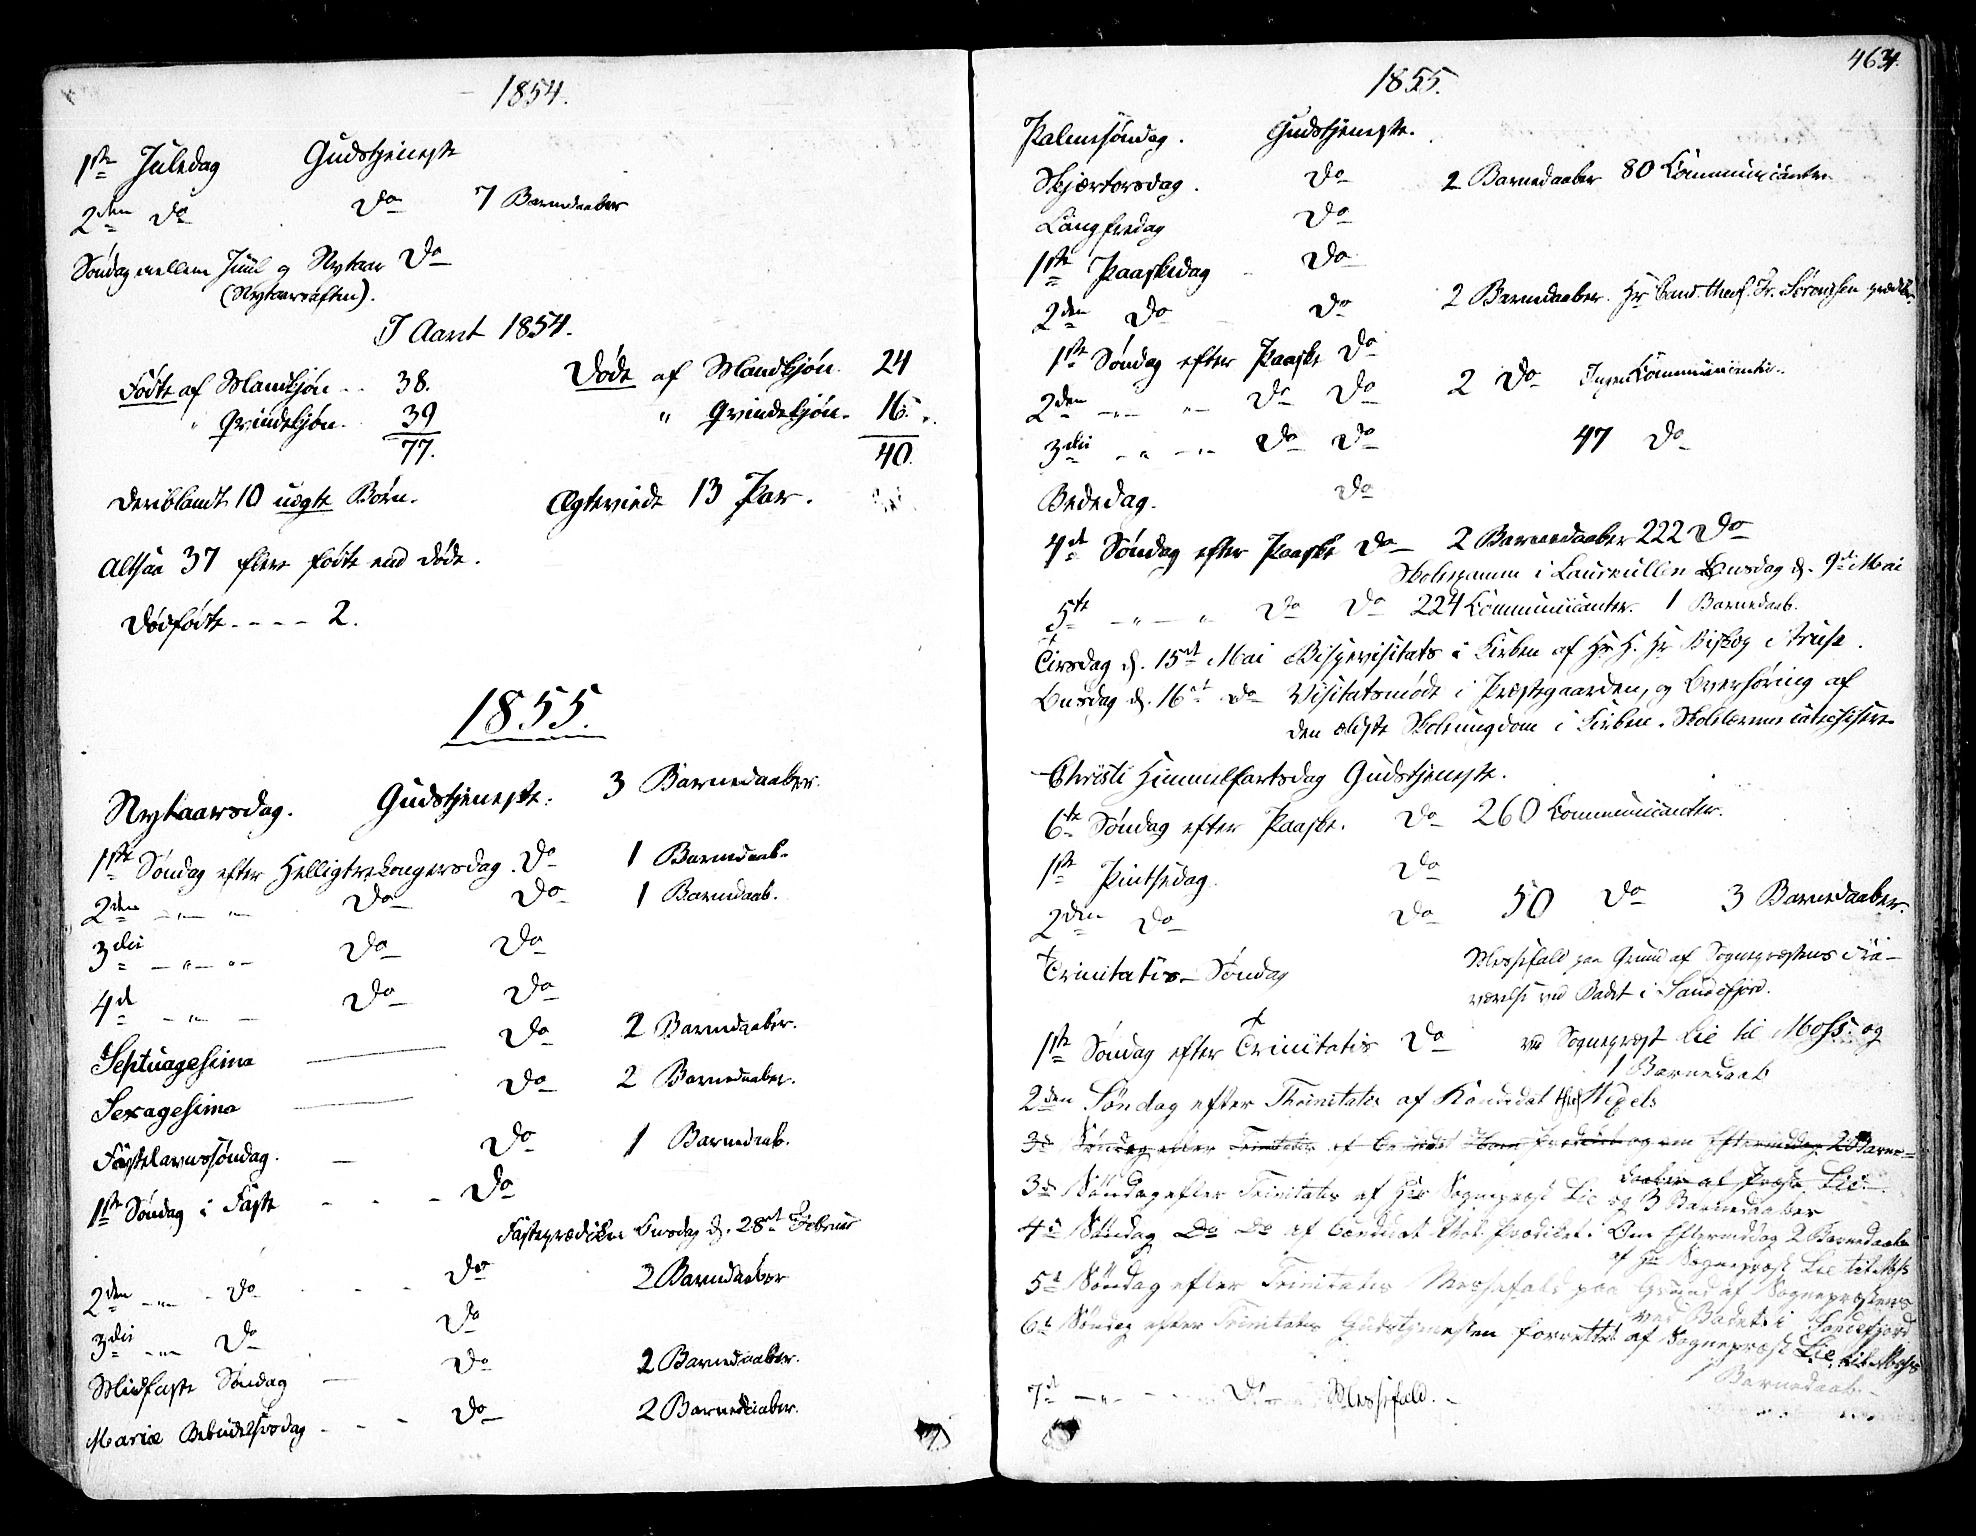 1854.
1ste Juledag Gudstjeneste
2den Do Do 7 Barnedaaber
Søndag mellem Juul og Nytaar Do
(Nytaarsaften).
I Aaret 1854.
Fødte af Mandkjøn 38. Døde af Mandkjøn 24
" Qvindekjøn. 39 " Qvindekjøn. 16.
77. 40.
Deriblandt 10 uægte Børn. Ægteviede 13 Par.
Altsaa 37 flere fødte end døde.
Dødfødte - - - - 2.
1855.
Nytaarsdag. Gudstjeneste. 3 Barnedaaber.
1ste Søndag efter Helligtrekongersdag. Do 1 Barnedaab.
2den - " - " Do Do 1 Barnedaab.
3die - " - " - Do Do
4de - " - Do Do
Septuagesima Do 2 Barnedaaber.
Sexagesima Do 2 Barnedaaber.
Fastelavnssøndag. - Do 1 Barnedaab.
1ste Søndag i Faste - - - Do
Fasteprædiken Onsdag d. 28de Februar
2den - " - Do - - Do 2 Barnedaaber
3die - " - Do Do
Midfaste Søndag - Do 2 Barnedaaber.
Mariæ Bebudelsesdag - - - Do 2 Barnedaaber.
463
1855.
Palmesøndag. Gudstjeneste.
Skjærtorsdag. Do 2 Barnedaaber 80 Communicanter
Langfredag Do
1ste Paaskedag Do
2den Do Do 2 Barnedaaber. Hr Cand. theol. Fr.
1ste Søndag efter Paaske Do
2den - " - " - Do Do 2 Do Ingen Communicanter.
3die - " - " - Do Do 47 Do
Bededag. Do
4de Søndag efter Paaske Do 2 Barnedaaber 222 Do
Onsdag d. 9de Mai
5te - " - " Do Do 224 Communicanter. 1 Barnedaab.
Tirsdag d. 15de Mai Bispevisitats i Kirken af Hr H. Hr Biskop Arup.
Onsdag d. 16de Do Visitatsmøde i Præstegaarden, og Overhøring af
den ældste Skoleungdom i Kirken. Skolelærerne catechiserede
Christi Himmelfartsdag Gudstjeneste.
6te Søndag efter Paaske. Do 260 Communicanter.
1ste Pintsedag. Do
2den Do Do 50 Do 3 Barnedaaber.
Trinitatis-Søndag Messefald paa Grund af Sognepræstens Fra-
værelse ved Badet i Sandefjord.
1ste Søndag efter Trinitatis Do ved Sognepræst Lie til Moss. og
1 Barnedaab
2den Søndag efter Thrinitatis af Kandidat theol
3de Søndag efter Trinitatis af og om Eftermiddag 2 Barne=
daaber af Præst Lie.
3de Søndag efter Trinitatis af Hr Sognepræst Lie og 3 Barnedaaber
4de Søndag Do Do af Candidat Prædiket. Om Eftermiddag 2 Barnedaaber
af Hr Sognepræst Lie til Moss
5te Søndag efter Trinitatis Messefald paa Grund af Sognepræstens
ved Badet i Sandefjord
6te Søndag efter Trinitatis Gudstjenesten forrettet af Sognepræst Lie til Moss
1 Barnedaab
7de - " - - Do - Messefald. -